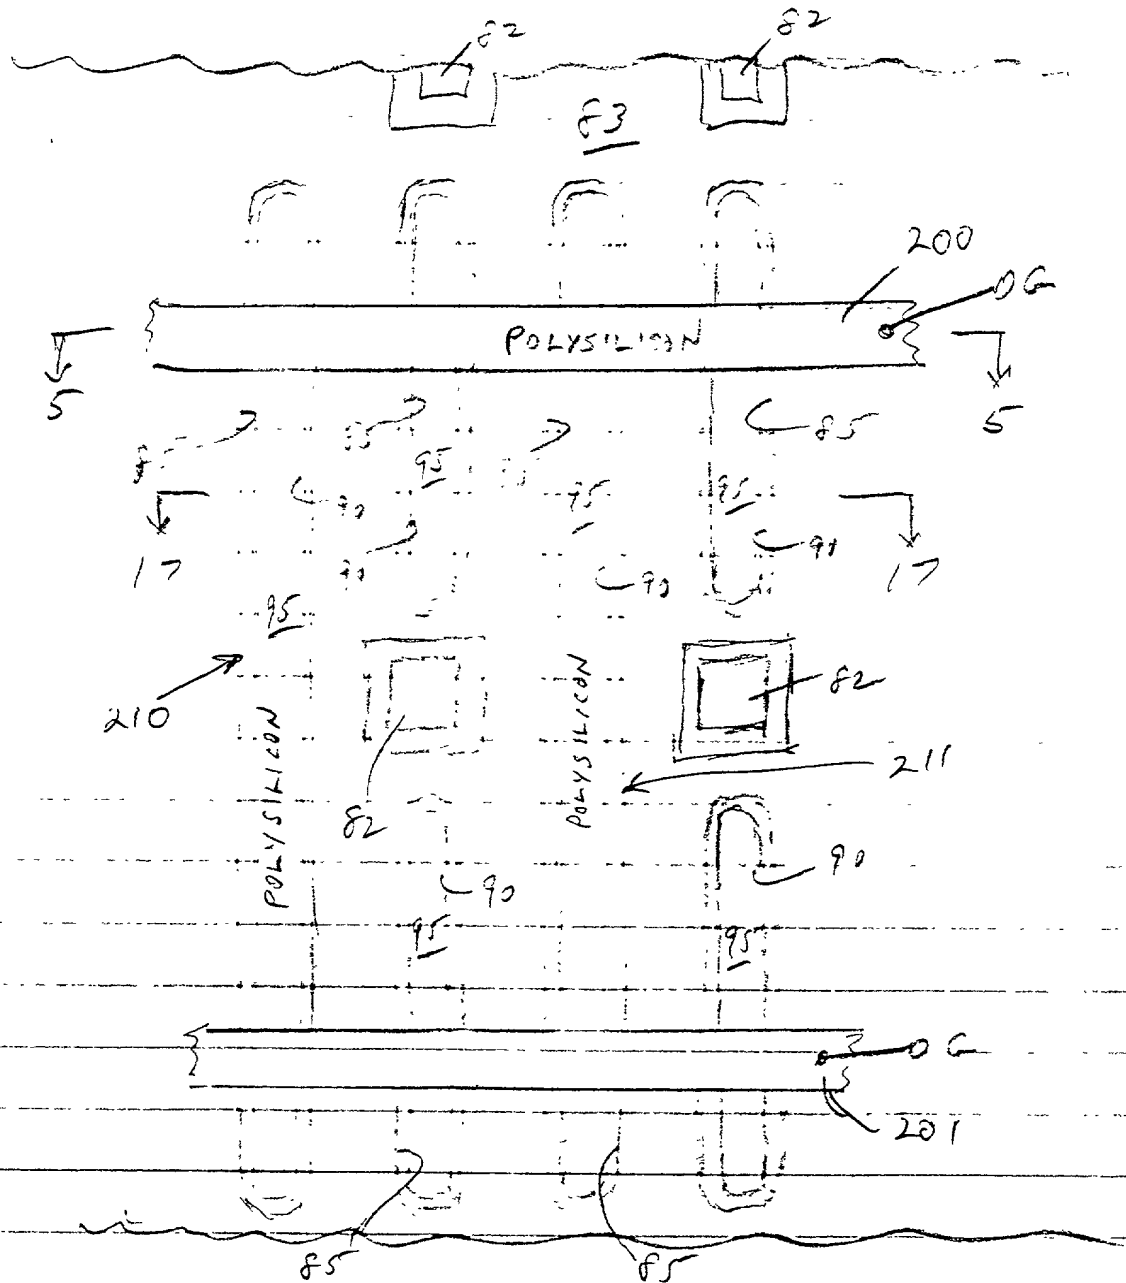 82 82
83
200
DG
POLYSILICON
5 5
85 85
95
95 95
90 90
17 90 90 17
95
210 82
POLYSILICON POLYSILICON
211
82
90
90
95 95
DG
201
85 85